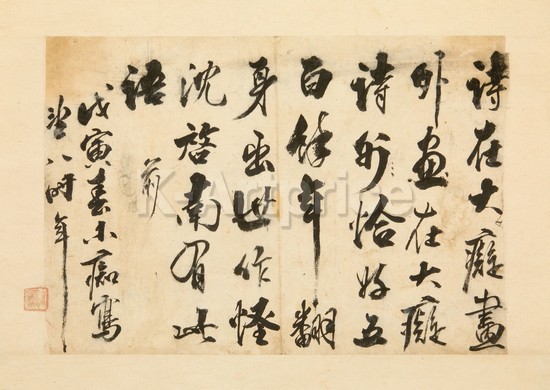 詩在大癡畫
外畫在大癡
詩外恰好五
百餘年翻
身出世作怪
沈啓南有此
語 前
戊寅春小痴寫
八時年
K-Artprice